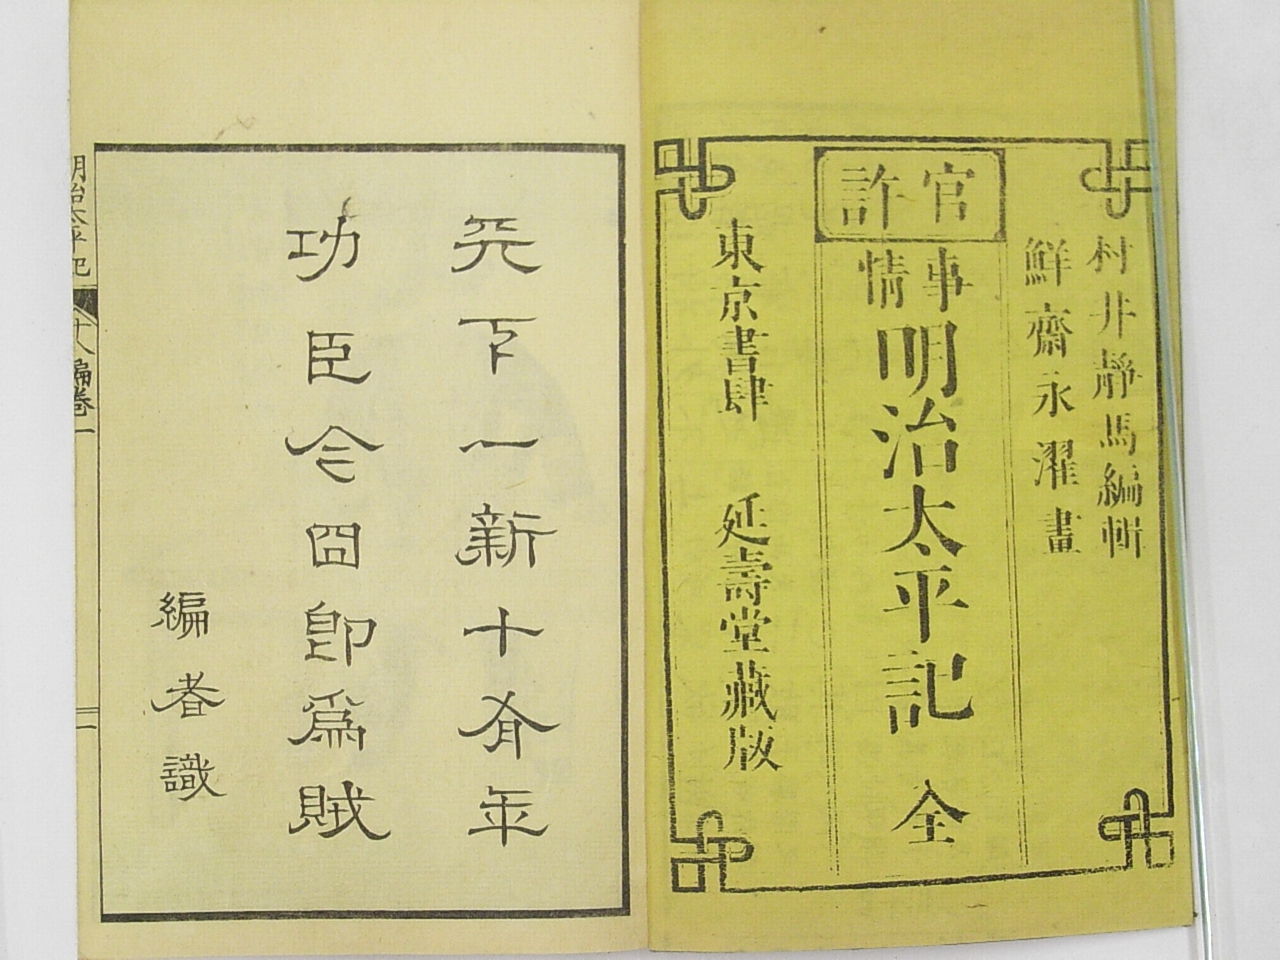 村井靜馬編輯
鮮齋永濯畫
官許
事情
明治太平記 全
東京書肆 延壽堂藏版
天下一新十有年
功臣今囘即爲賊
編者識
明治太平記 十八編卷一 一